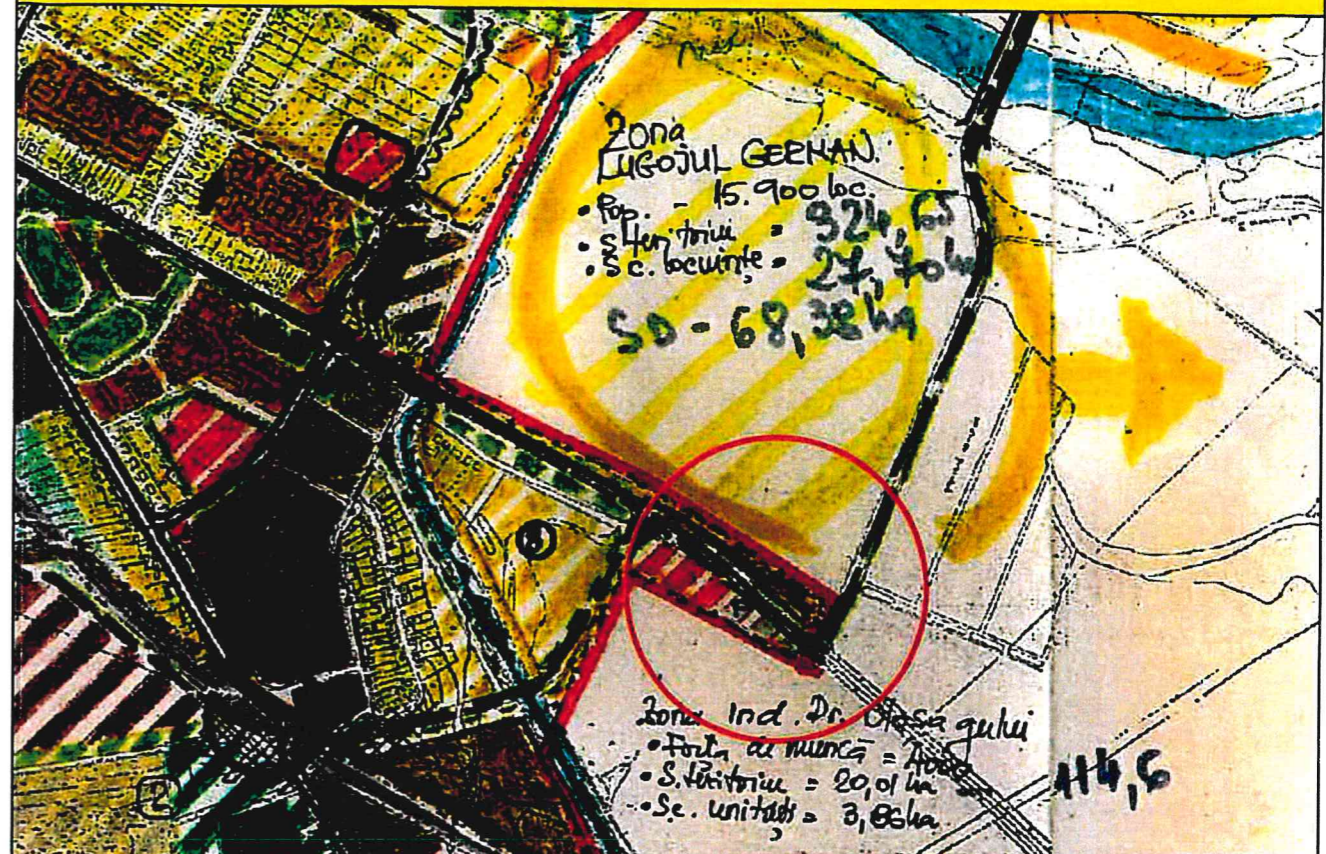 Zona
LUGOJUL GERMAN.
• Pop. - 15.900 loc.
• S teritoriu = 324,65
• S c. locuințe = 27,70 ha
SD - 68,38 ha
Zona Ind. Dr.
• Forța de muncă =
• S. teritoriu = 20,01 ha
• S.c. unități = 3,86 ha
114,6